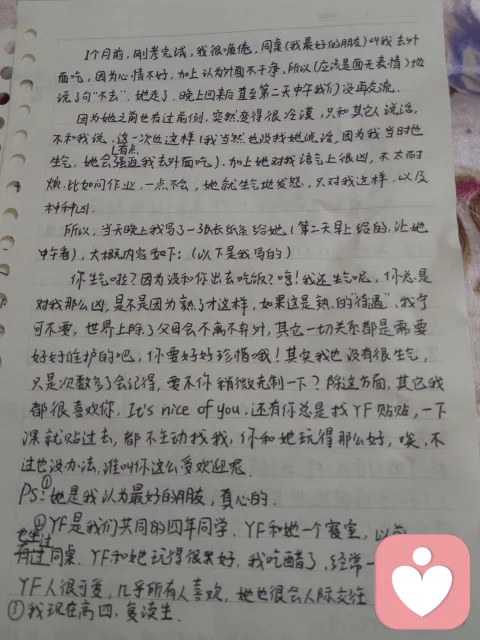 1个月前，刚考完试，我很疲倦，同桌(我最好的朋友)叫我去外
面吃，因为心情不好，加上认为外面不干净，所以(应该是面无表情)地
说了句"不去"．她走了．晚上回来后直至第二天中午我们没再交流．
因为她之前也有过前例，突然变得很冷漠，只和其它人说话，
不和我说，这一次也这样(我当然也没找她说话，因为我当时也
有点
生气，她会强迫我去外面吃)．加上她对我语气上很凶，不太耐
烦．比如问作业，一点不会，她就生气地发怒，只对我这样．以及
种种凶．
所以，当天晚上我写了一张长纸条给她(第二天早上给的，让她
中午看)，大概内容如下：(以下是我写的)
你生气啦？因为没和你出去吃饭？哼！我还生气呢，你总是
对我那么凶，是不是因为熟了才这样，如果这是熟的"待遇"，我宁
可不要，世界上除了父母会不离不弃外，其它一切关系都是需要
好好维护的吧，你要好好珍惜哦！其实我也没有很生气，
只是次数多了会记得，要不你稍微克制一下？除这方面，其它我
都很喜欢你，It's nice of you，还有你总是找YF贴贴，一下
课就贴过去，都不主动找我，你和她玩得那么好，唉，不
过也没办法，谁叫你这么受欢迎呢．
PS：①她是我认为最好的朋友，真心的．
②YF是我们共同的四年同学．YF和她一个寝室，以前
也坐过
同桌．YF和她玩得很好，我吃醋了，经常一
YF人很可爱，几乎所有人喜欢，她也很会人际交往
①我现在高四，复读生．